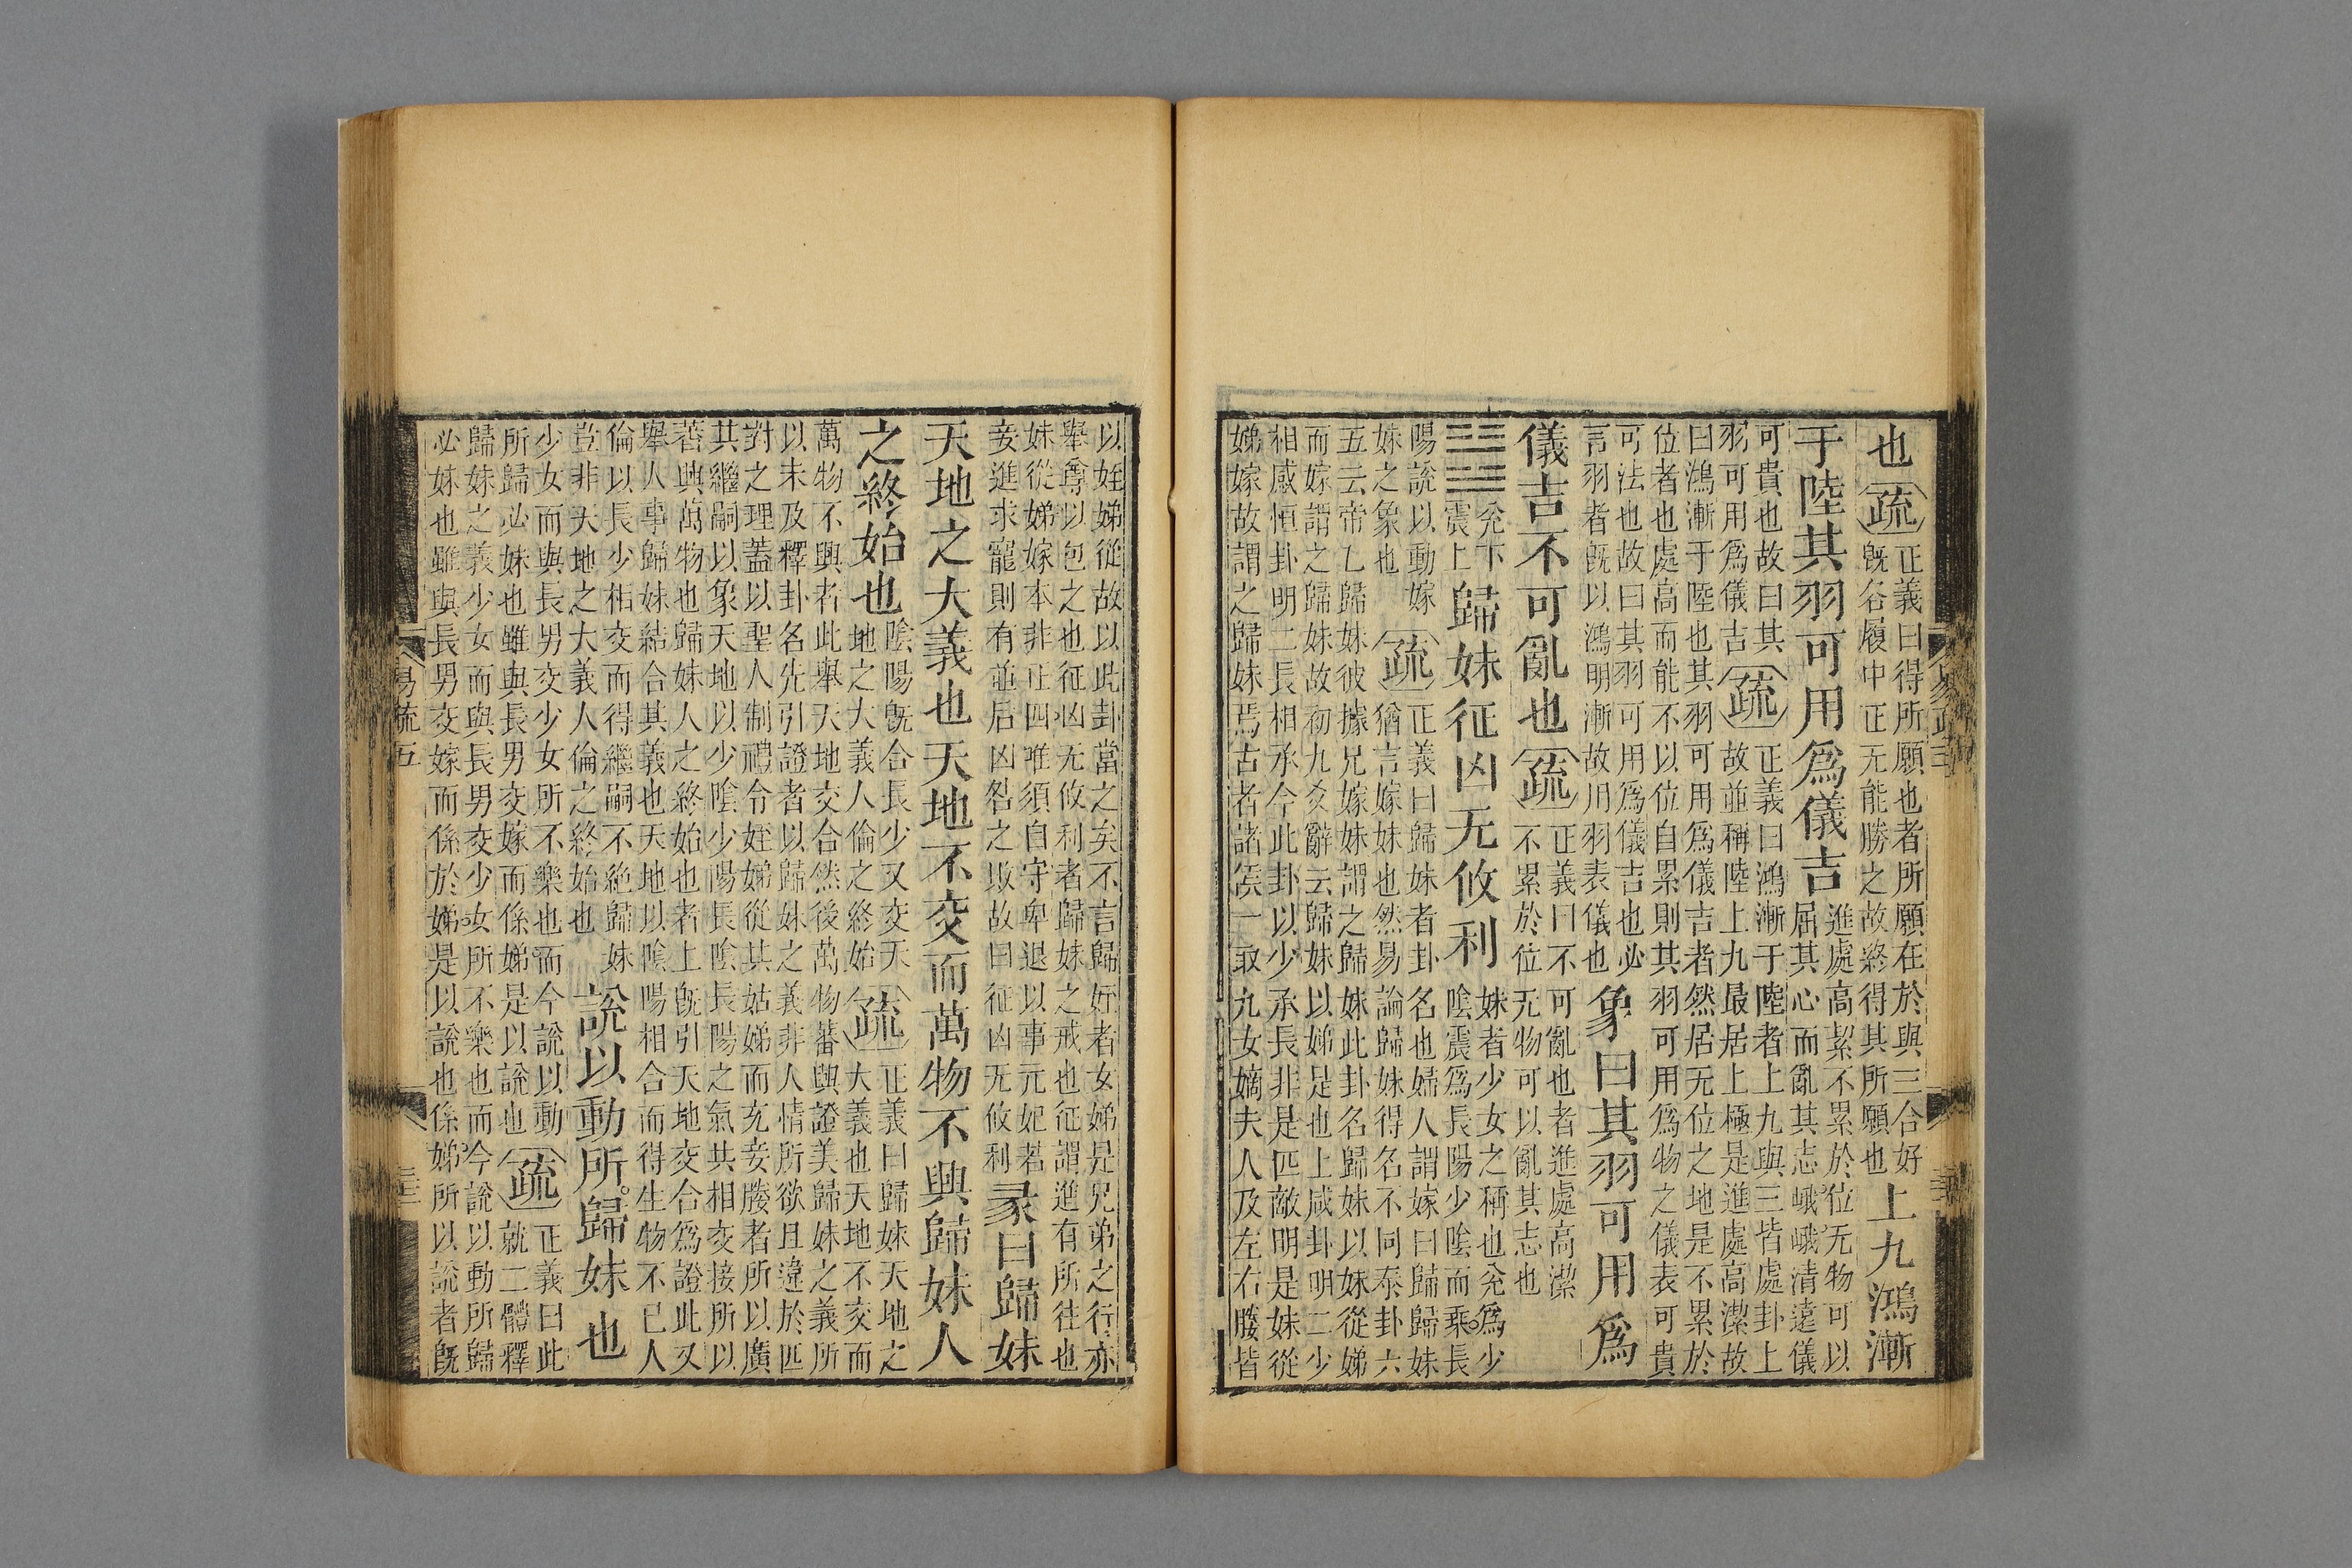 也疏正義曰得所願也者所願在於與三合好
既各履中正无能勝之故終得其所願也上九鴻漸
于陸其羽可用爲儀吉進處高絜不累於位无物可以
屈其心而亂其志峨峨清遠儀
可貴也故曰其
羽可用爲儀吉疏正義曰鴻漸于陸者上九與三皆處卦上
故並稱陸上九最居上極是進處高潔故
曰鴻漸于陸也其羽可用爲儀吉者然居无位之地是不累於
位者也處高而能不以位自累則其羽可用爲物之儀表可貴
可法也故曰其羽可用爲儀吉也必
言羽者既以鴻明漸故用羽表儀也象曰其羽可用爲
儀吉不可亂也疏正義曰不可亂也者進處高潔
不累於位无物可以亂其志也
兌下
震上歸妹征凶无攸利妹者少女之稱也兌爲少
陰震爲長陽少陰而乘長
陽說以動嫁
妹之象也疏正義曰歸妹者卦名也婦人謂嫁曰歸歸妹
猶言嫁妹也然易論歸妹得名不同泰卦六
五云帝乙歸妹彼據兄嫁妹謂之歸妹此卦名歸妹以妹從娣
而嫁謂之歸妹故初九爻辭云歸妹以娣是也上咸卦明二少
相感恒卦明二長相承今此卦以少承長非是匹敵明是妹從
娣嫁故謂之歸妹焉古者諸侯一取九女嫡夫人及左右媵皆
以姪娣從故以此卦當之矣不言歸姪者女娣是兄弟之行亦
舉尊以包之也征凶无攸利者歸妹之戒也征謂進有所往也
妹從娣嫁本非正四唯須自守卑退以事元妃若
妾進求寵則有並后凶咎之敗故曰征凶无攸利彖曰歸妹
天地之大義也天地不交而萬物不興歸妹人
之終始也陰陽既合長少又交天
地之大義人倫之終始疏正義曰歸妹天地之
大義也天地不交而
萬物不興者此舉天地交合然後萬物蕃興證美歸妹之義所
以未及釋卦名先引證者以歸妹之義非人情所欲且違於匹
對之理蓋以聖人制禮令姪娣從其姑娣而充妾媵者所以廣
其繼嗣以象天地以少陰少陽長陰長陽之氣共相交接所以
蕃興萬物也歸妹人之終始也者上既引天地交合爲證此又
舉人事歸妹結合其義也天地以陰陽相合而得生物不已人
倫以長少相交而得繼嗣不絶歸妹
豈非天地之大義人倫之終始也說以動所歸妹也
少女而與長男交少女所不樂也而今說以動
所歸必妹也雖與長男交嫁而係娣是以說也疏正義曰此
就二體釋
歸妹之義少女而與長男交少女所不樂也而今說以動所歸
必妹也雖與長男交嫁而係於娣是以說也係娣所以說者既
易疏五